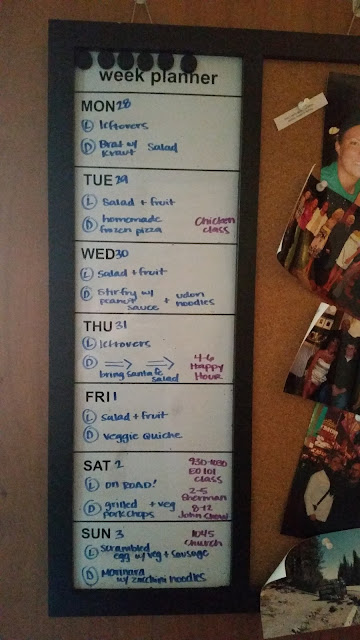 week planner
MON 28
L leftovers
D Brat w/ Salad
Kraut
TUE 29
L Salad + fruit
D homemade Chicken
frozen pizza class
WED 30
L Salad + fruit
D Stirfry w/
peanut + udon
sauce noodles
THU 31
L leftovers 4-6
D ⇒ ⇒ Happy
bring santa fe Hour
salad
FRI 1
L Salad + fruit
D Veggie Quiche
SAT 2 930-1030
EO101
L ON ROAD! class
2-5
Sherman
D grilled + veg 8-12
porkchops John
SUN 3 1045
L Scrambled Church
egg w/ veg + sausage
D Marinara
w/ zucchini noodles